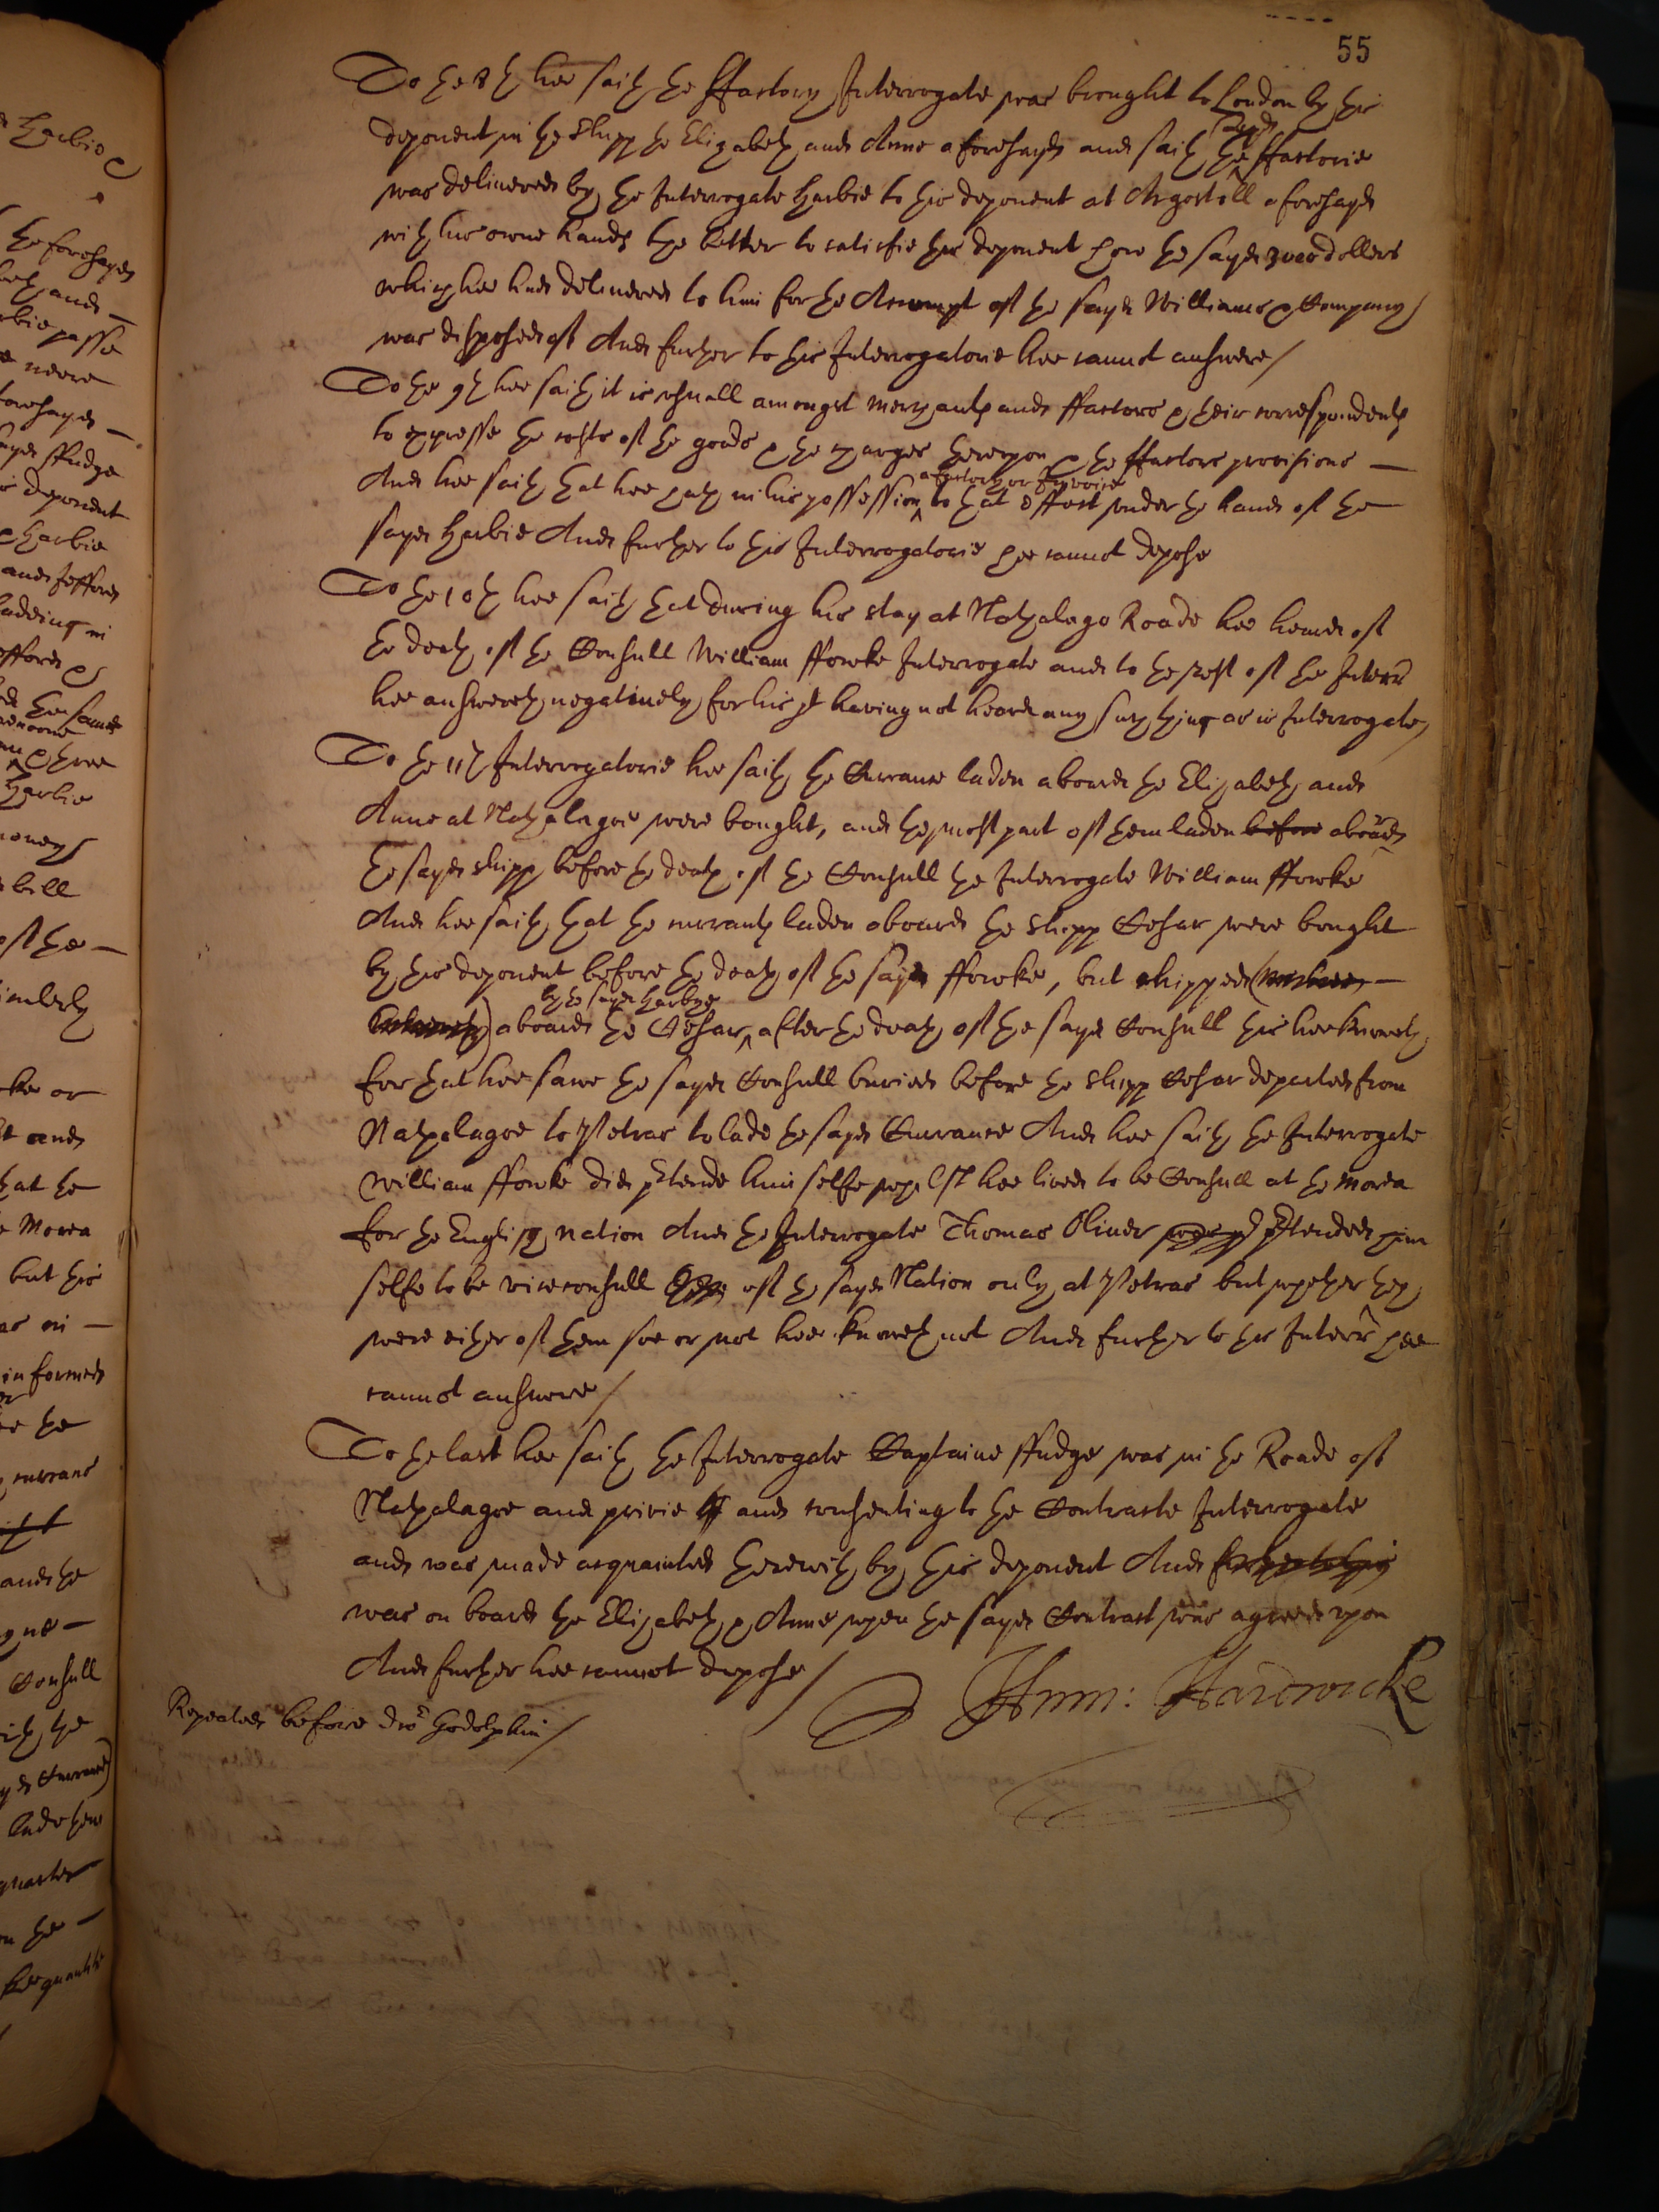 55
To the 8th hee saith the ffactory Interrogate was brought to London by this
deponent in the Shipp the Elizabeth and Anne aforesayd and saith the sayd ffactorie
was delivered by the Interrogate Harbie to this deponent at Argostoll aforesayd
with his owne hands the better to satisfie this deponent how the sayd 3000 dollers
which hee had delivered to him for the Accompt of the sayd Williams & Company
was disposed of And further to this Interrogatorie hee cannot answere/
To the 9th hee saith it is usuall amongst merchants and ffactors & their correspondents
to expresse the costs of the goods & the charges thereupon & the ffactors provisions —
And hee saith that hee hath in his possession a factory or Invoice to that effect under the hand of the
sayd Harbie And further to this Interrogatorie hee cannot depose
To the 10th hee saith that during his stay at Nathalago Roade hee heard of
the death of the Consull William ffowke Interrogate and to the rest of the Interr
hee answereth negatively for his pt having not heard any such thing as is Interrogate
To the 11th Interrogatorie hee saith the Currance laden aboard the Elizabeth and
Anne at Nathalagoe were bought, and the most part of them laden before aboard
the sayd shipp before the death of the Consull the Interrogate William ffowke
And hee saith that the currants laden aboard the Shipp Cesar were bought
by this deponent before the death of the sayd ffowke, but shipped —
aboard the Cesar by the sayd Harbye after the death of the sayd Consull this hee knoweth
for that hee sawe the sayd Consull buried before the Shipp Cesar departed from
Nathalagoe to Petras to lade the sayd Currance And hee saith the Interrogate
William ffowke did ptende him selfe whilst hee lived to be Consull at the Morea
for the English nation And the Interrogate Thomas Oliver ptended him
selfe to be viceconsull of the sayd Nation only at Petras but whether they
were either of them soe or not hee knoweth not And further to this Interr hee
cannot answere/
To the last hee saith the Interrogate Captaine ffudge was in the Roade of
Nathalagoe and privie and consenting to the Contracte Interrogate
and was made acquainted therewith by this deponent And further to this
was on board the Elizabeth & Anne when the sayd Contract was agreed upon
And further hee cannot depose/
Hum: Hardwicke
Repeated before dor Godolphin/